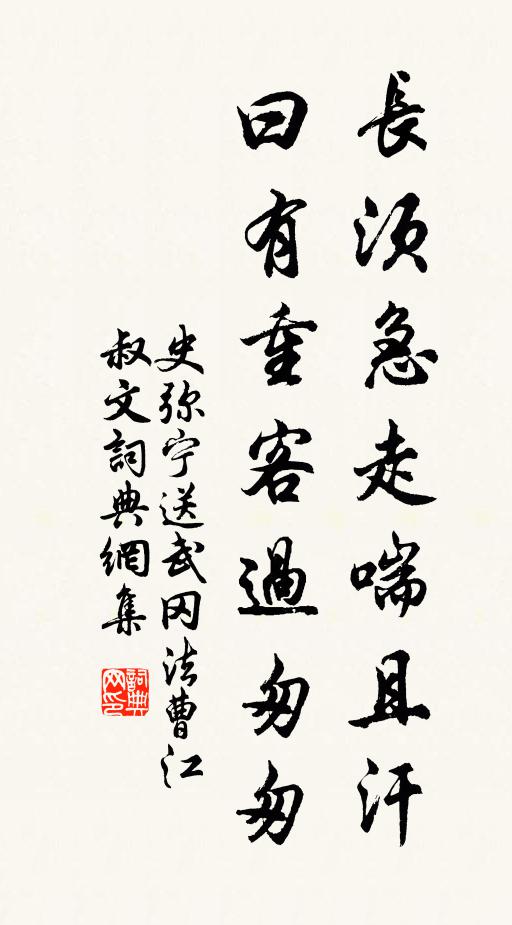 長須急走喘且汗
曰有重客過匆匆
史弥宁送武冈法曹江
叔文詞典網集
詞典网印